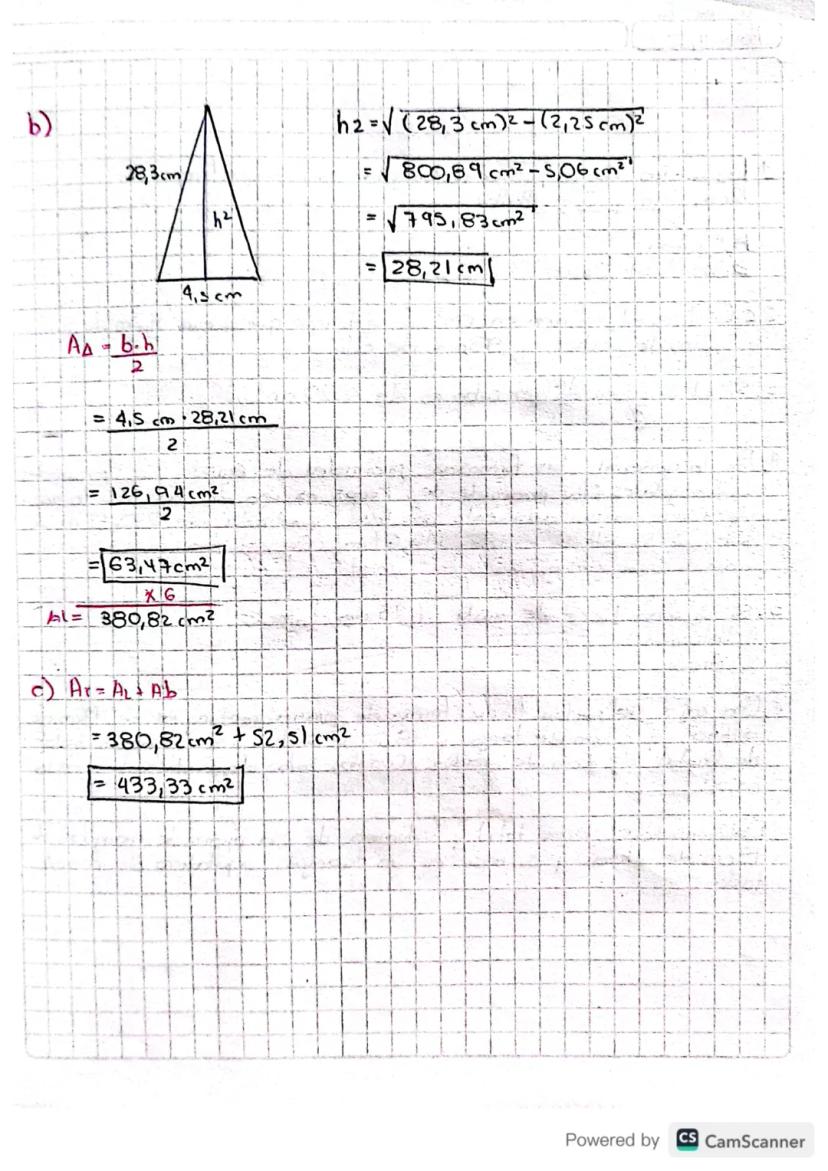 b)
28,3cm
h2
4,5 cm
h2 = √(28,3 cm)² - (2,25 cm)²
= √800,89 cm² - 5,06 cm²
= √795,83 cm²
= 28,21 cm
A△ = b·h
2
= 4,5 cm · 28,21 cm
2
= 126,94 cm²
2
= 63,47 cm²
x 6
AL = 380,82 cm²
c) AT = AL + Ab
= 380,82 cm² + 52,51 cm²
= 433,33 cm²
Powered by CS CamScanner